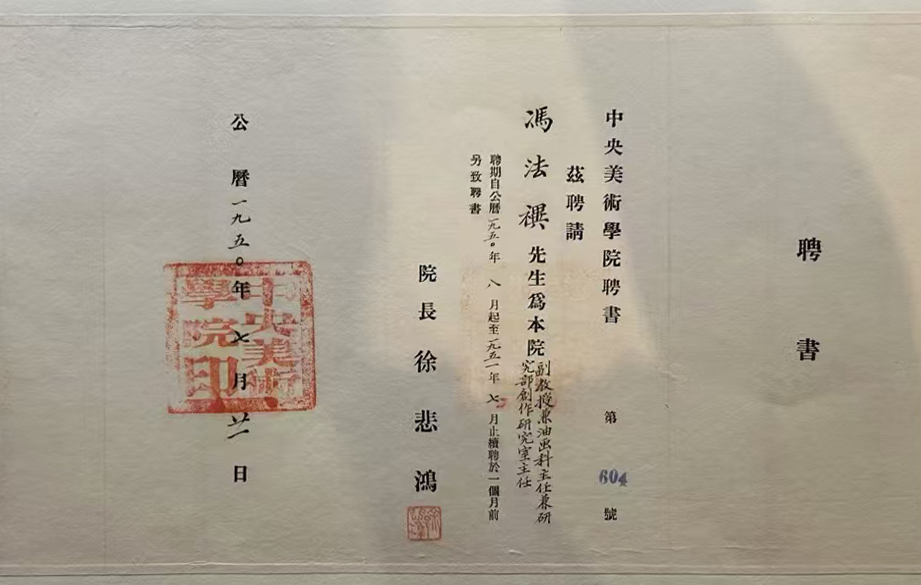 聘書
中央美術學院聘書 第604號
茲聘請
馮法禩先生爲本院副教授兼油画科主任兼研
究部創作研究室主任
聘期自公曆一九五〇年八月起至一九五一年七月止續聘於一個月前
另致聘書
院長徐悲鴻
公曆一九五〇年七月廿一日
中央美術
學院印